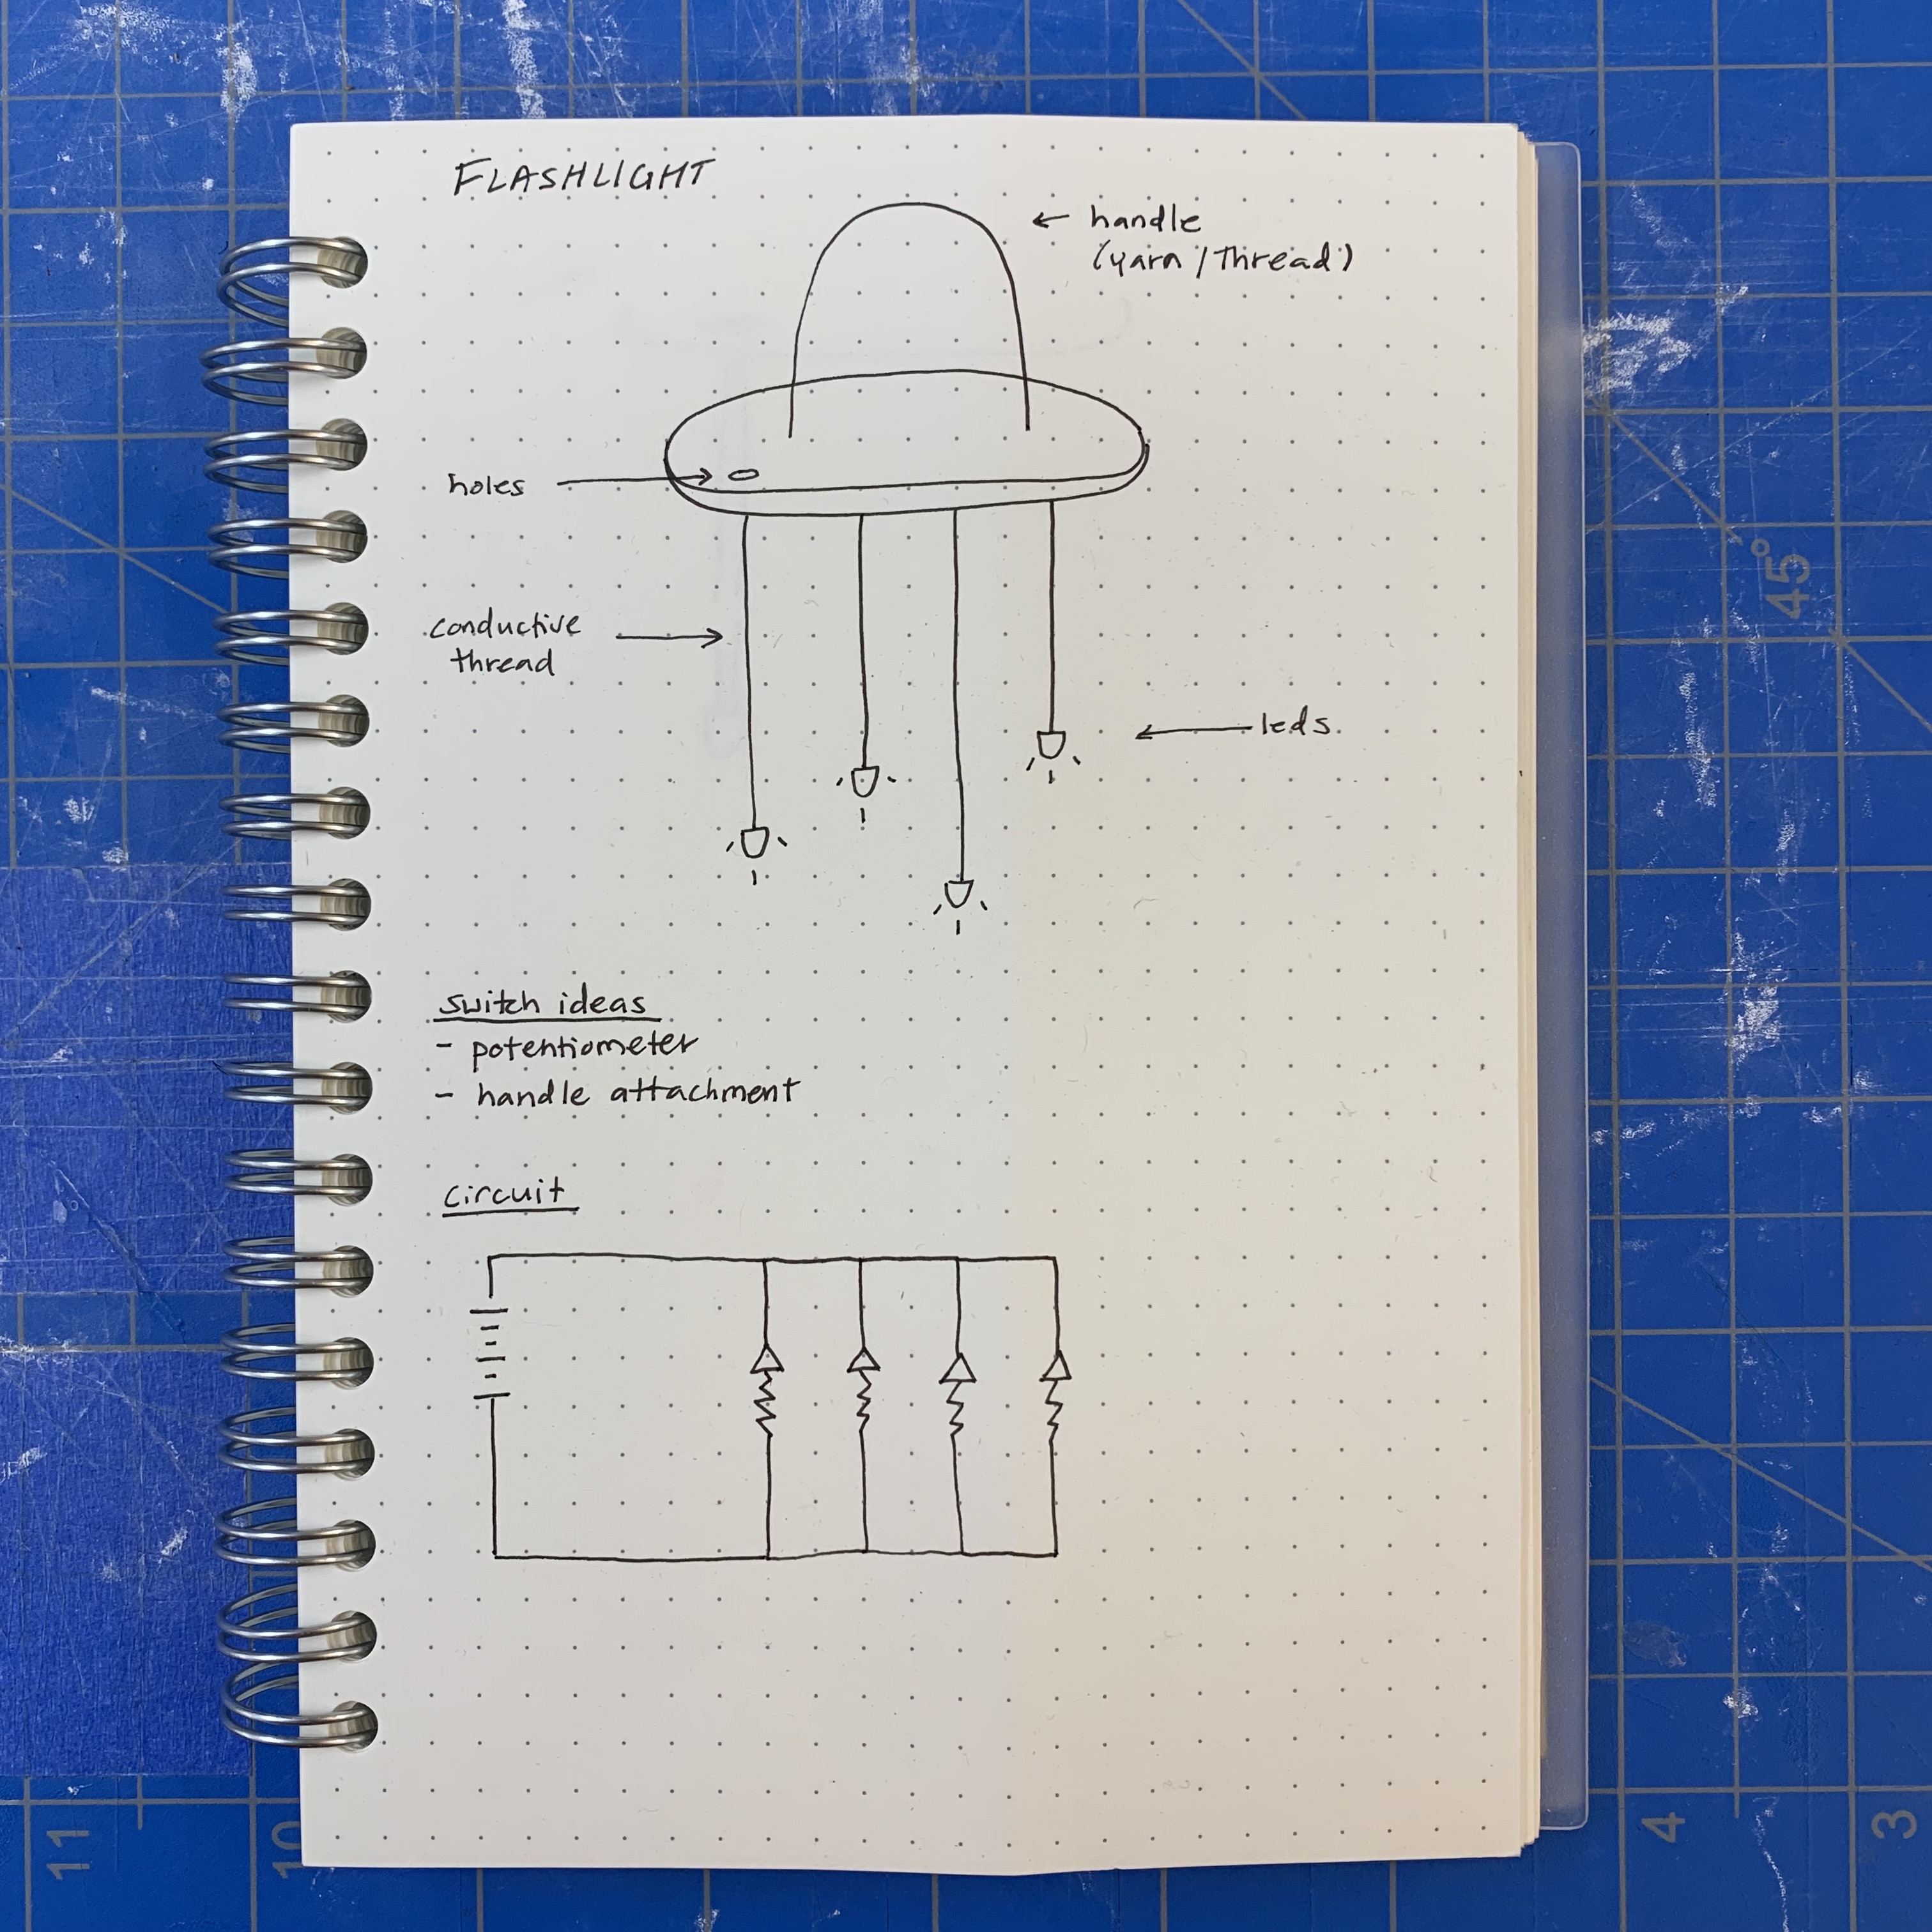 FLASHLIGHT
← handle
(yarn / Thread)
holes
conductive
thread
leds
switch ideas
- potentiometer
- handle attachment
circuit
45°
11
10
4
3